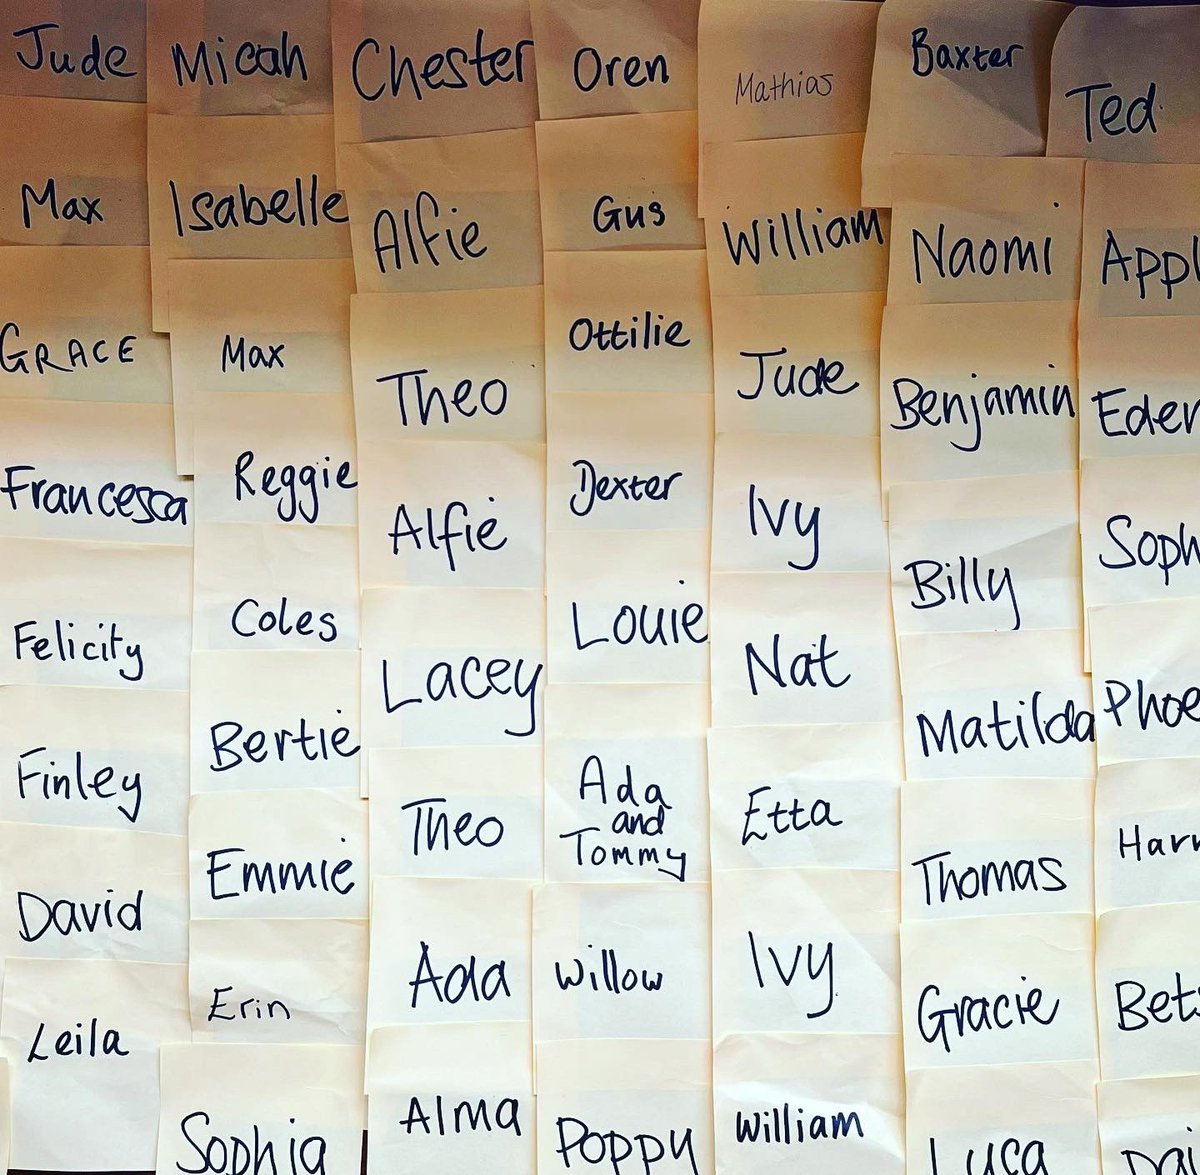 Jude
Max
GRACE
Francesca
Felicity
Finley
David
Leila
Micah
Isabelle
Max
Reggie
Coles
Bertie
Emmie
Erin
Sophia
Chester
Alfie
Theo
Alfie
Lacey
Theo
Ada
Alma
Oren
Gus
Ottilie
Dexter
Louie
Ada
and
Tommy
Willow
Poppy
Mathias
William
Jude
Ivy
Nat
Etta
Ivy
William
Baxter
Naomi
Benjamin
Billy
Matilda
Thomas
Gracie
Luca
Ted
Appl
Soph
Phoe
Bets